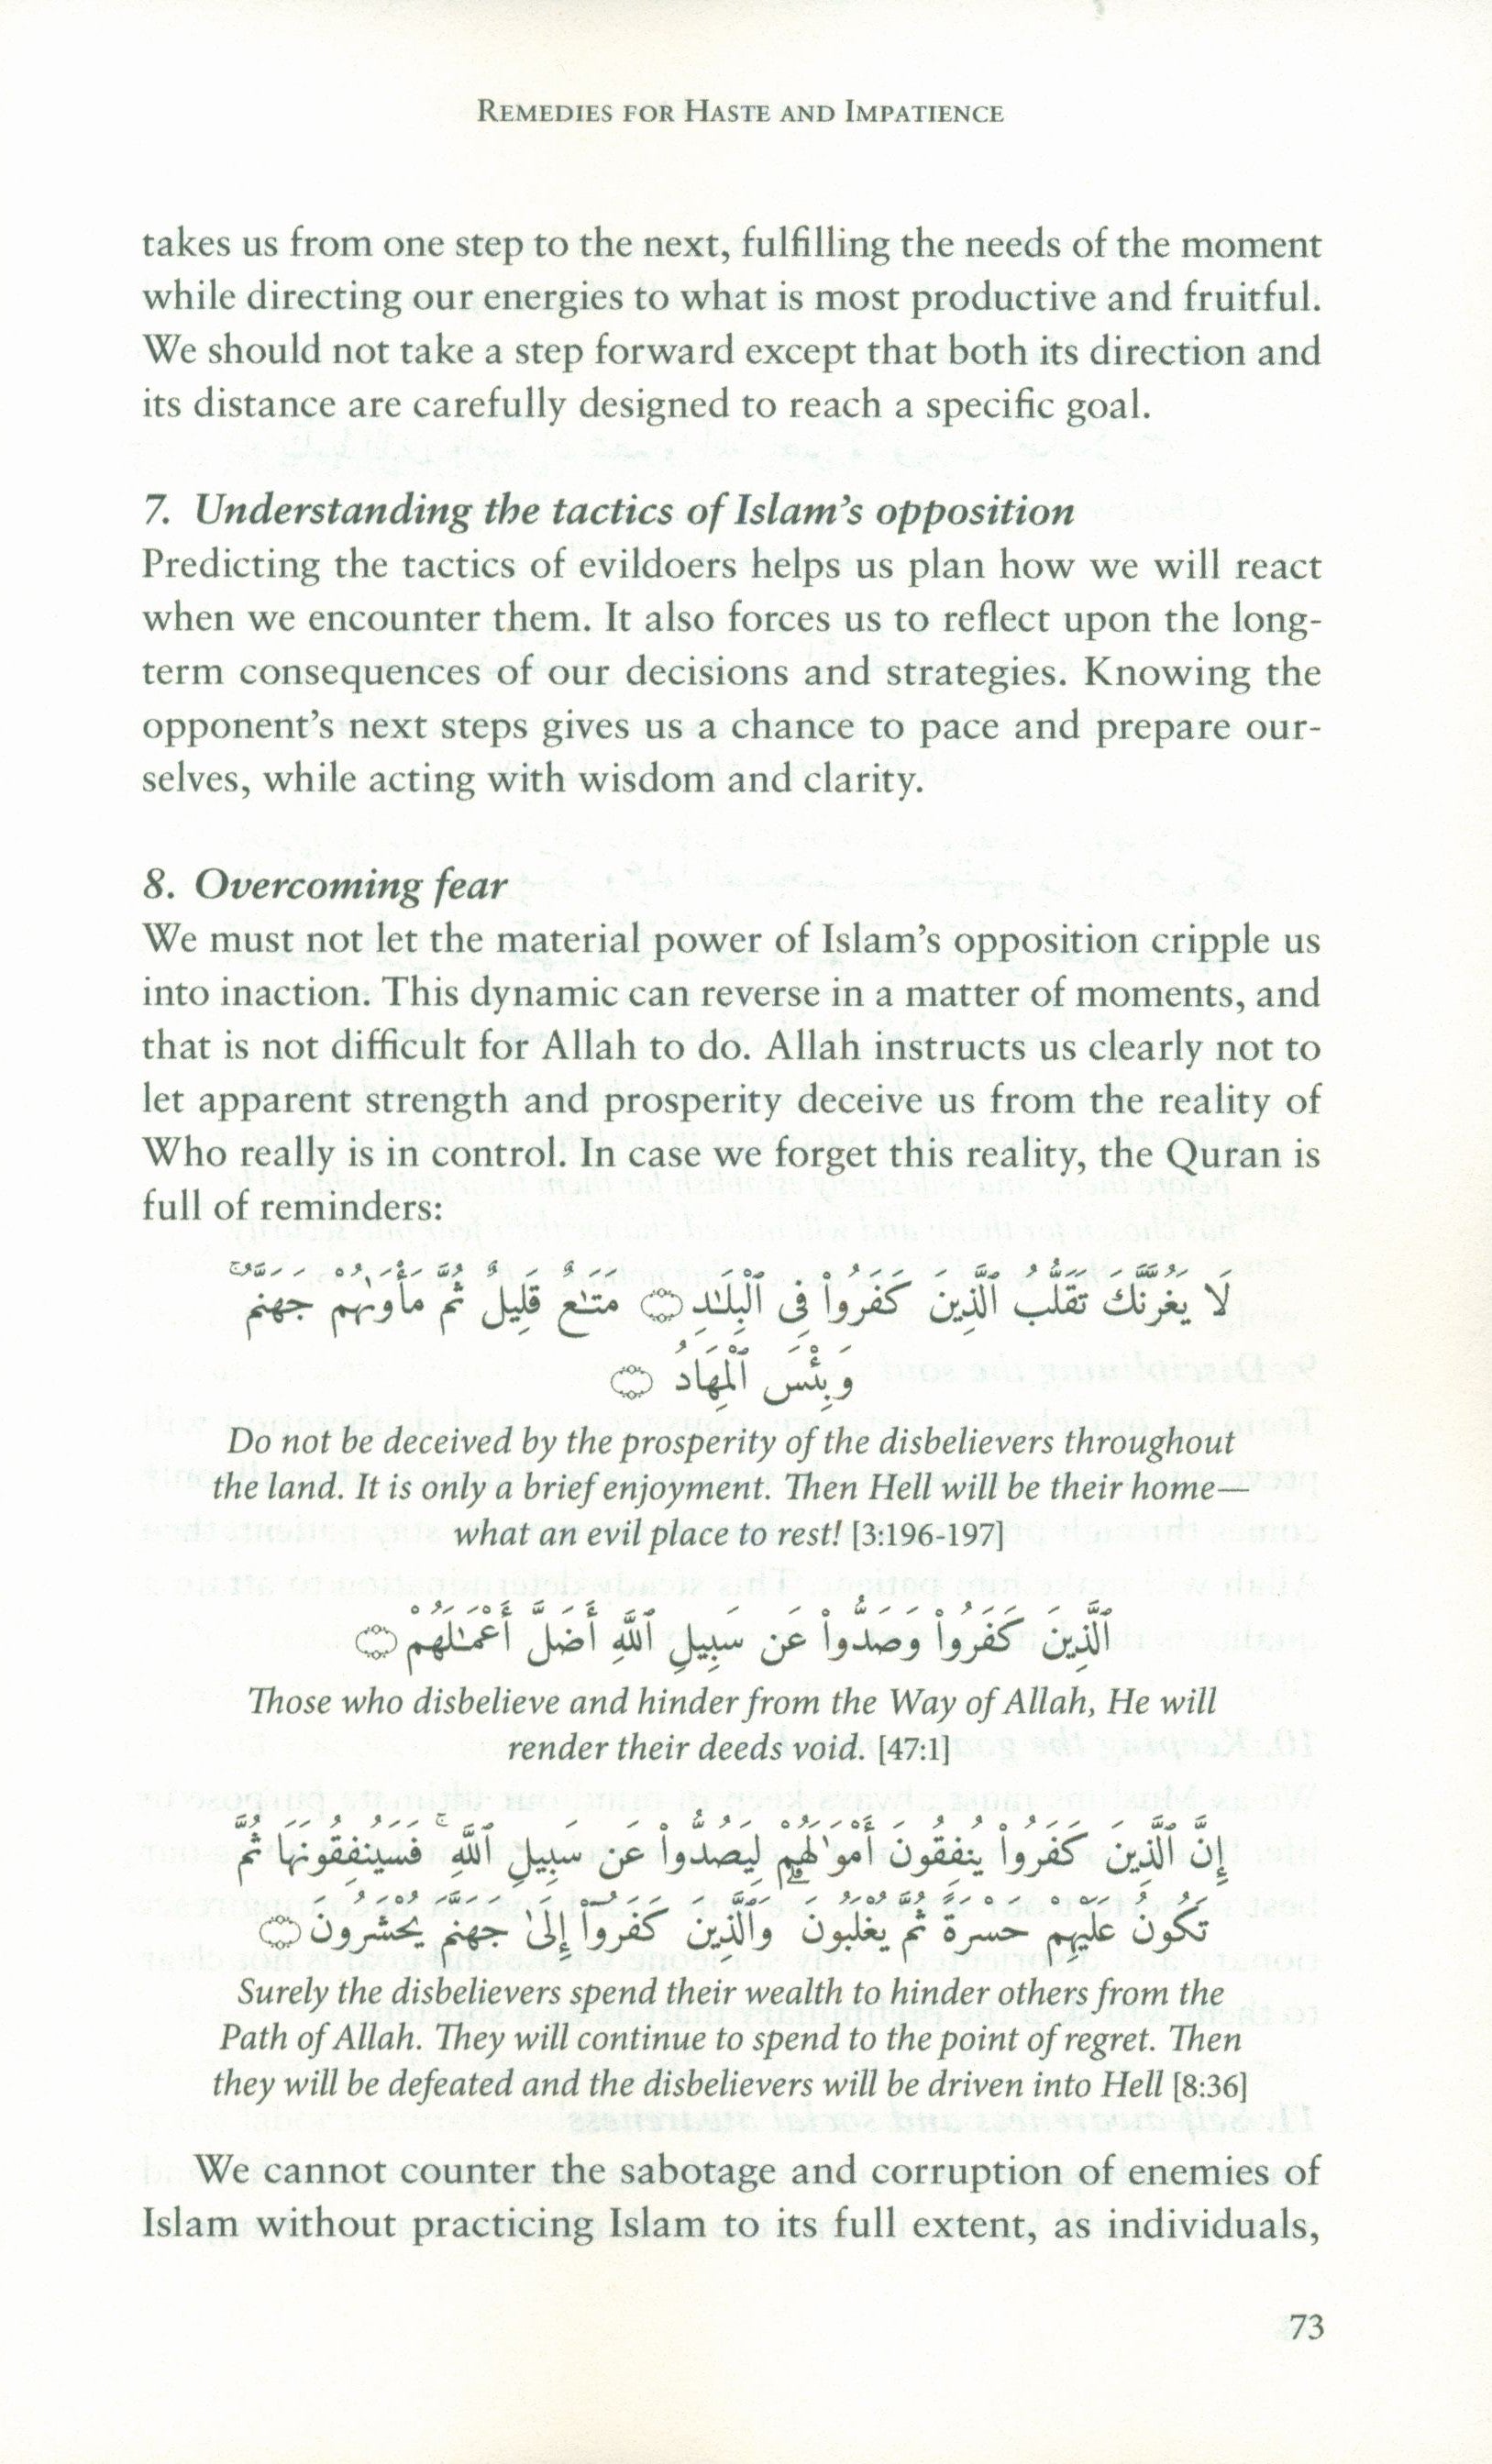 REMEDIES FOR HASTE AND IMPATIENCE
takes us from one step to the next, fulfilling the needs of the moment
while directing our energies to what is most productive and fruitful.
We should not take a step forward except that both its direction and
its distance are carefully designed to reach a specific goal.
7. Understanding the tactics of Islam's opposition
Predicting the tactics of evildoers helps us plan how we will react
when we encounter them. It also forces us to reflect upon the long-
term consequences of our decisions and strategies. Knowing the
opponent's next steps gives us a chance to pace and prepare our-
selves, while acting with wisdom and clarity.
8. Overcoming fear
We must not let the material power of Islam's opposition cripple us
into inaction. This dynamic can reverse in a matter of moments, and
that is not difficult for Allah to do. Allah instructs us clearly not to
let apparent strength and prosperity deceive us from the reality of
Who really is in control. In case we forget this reality, the Quran is
full of reminders:
لَا يَغُرَّنَّكَ تَقَلُّبُ ٱلَّذِينَ كَفَرُوا۟ فِى ٱلْبِلَـٰدِ ۝ مَتَـٰعٌ قَلِيلٌ ثُمَّ مَأْوَىٰهُمْ جَهَنَّمُ ۚ
وَبِئْسَ ٱلْمِهَادُ ۝
Do not be deceived by the prosperity of the disbelievers throughout
the land. It is only a brief enjoyment. Then Hell will be their home—
what an evil place to rest! [3:196-197]
ٱلَّذِينَ كَفَرُوا۟ وَصَدُّوا۟ عَن سَبِيلِ ٱللَّهِ أَضَلَّ أَعْمَـٰلَهُمْ ۝
Those who disbelieve and hinder from the Way of Allah, He will
render their deeds void. [47:1]
إِنَّ ٱلَّذِينَ كَفَرُوا۟ يُنفِقُونَ أَمْوَٰلَهُمْ لِيَصُدُّوا۟ عَن سَبِيلِ ٱللَّهِ ۚ فَسَيُنفِقُونَهَا ثُمَّ
تَكُونُ عَلَيْهِمْ حَسْرَةً ثُمَّ يُغْلَبُونَ ۗ وَٱلَّذِينَ كَفَرُوٓا۟ إِلَىٰ جَهَنَّمَ يُحْشَرُونَ ۝
Surely the disbelievers spend their wealth to hinder others from the
Path of Allah. They will continue to spend to the point of regret. Then
they will be defeated and the disbelievers will be driven into Hell [8:36]
We cannot counter the sabotage and corruption of enemies of
Islam without practicing Islam to its full extent, as individuals,
73